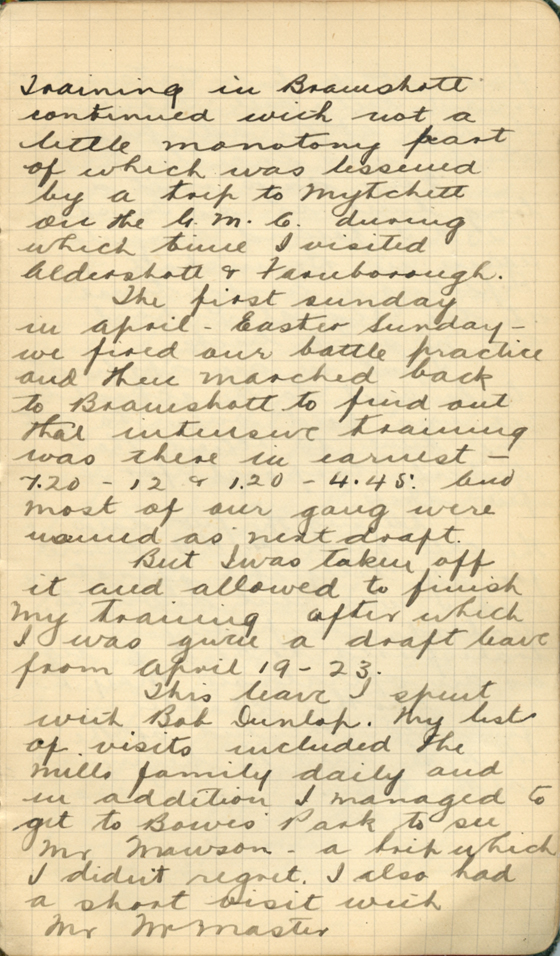 Training in Bramshott
continued with not a
little monotony part
of which was lessened
by a trip to Mytchett
on the G. M. C. during
which time I visited
Aldershott & Farnborough.
The first sunday
in april - Easter Sunday -
we fired our battle practice
and then marched back
to Bramshott to find out
that intensive training
was there in earnest -
7.20 - 12 & 1.20 - 4.45. And
most of our gang were
named as next draft.
But I was taken off
it and allowed to finish
my training after which
I was given a draft leave
from April 19 - 23.
This leave I spent
with Bob Dunlop. My list
of visits included the
Mills family daily and
in addition I managed to
get to Bowes Park to see
Mr Mawson - a trip which
I didn't regret. I also had
a short visit with
Mr McMaster